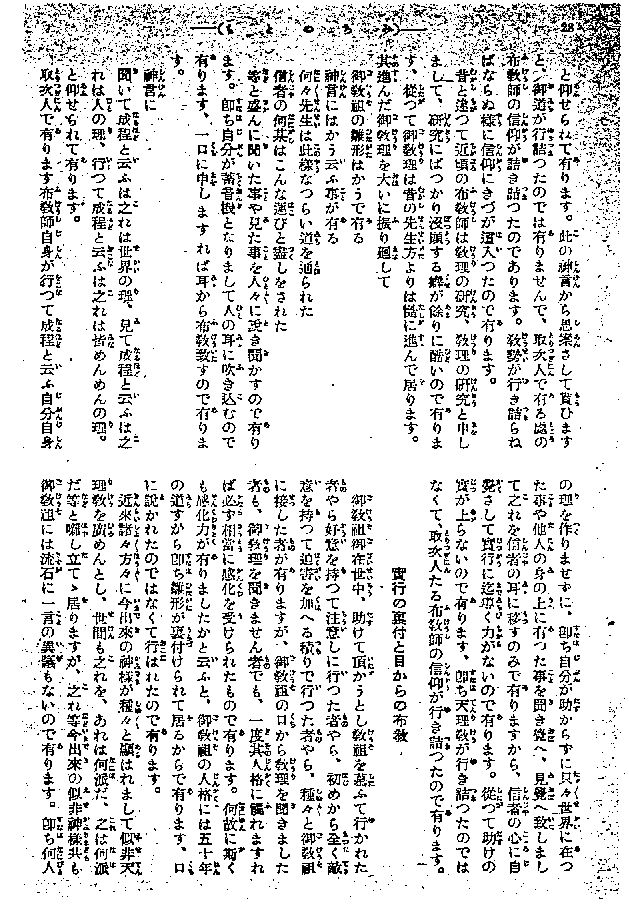 28
みちのとも
と仰せられて有ります。此の神言から思案さして貰ひます
と、御道が行詰つたのでは有りませんで、取次人で有る處の
布教師の信仰が詰き詰つたのであります。教勢が行き詰らね
ばならぬ樣に信仰にきづが這入つたので有ります。
昔と違つて近頃の布教師は教理の研究、教理の研究と申し
まして、研究にばつかり沒頭する癖が餘りに酷いので有りま
す、從つて御教理は昔の先生方よりは慥に進んで居ります。
其進んだ御教理を大いに振り廻して
御教祖の雛形はかうで有る
神言にはかう云ふ事が有る
何々先生は此樣なつらい道を通られた
信者の何某はこんな運びと盡しをされた
等と盛んに聞いた事や見た事を人々に説き聞かすので有り
ます。卽ち自分が蓄音機となりまして人の耳に吹き込むので
有ります、一口に申しますれば耳から布教致すので有りま
す。
神言に
聞いて成程と云ふは之れは世界の理、見て成程と云ふは之
れは人の理、行つて成程と云ふは之れは皆めんめんの理。
と仰せられて有ります。
取次人で有ります布教師自身が行つて成程と云ふ自分自身
の理を作りませずに、卽ち自分が助からずに只々世界に在つ
た事や他人の身の上に有つた事を聞き覺へ、見覺へ致しまし
て之れを信者の耳に移すのみで有りますから、信者の心に自
覺さして實行に迄導く力がないので有ります。從つて助けの
實が上らないので有ります、卽ち天理教が行き詰つたのでは
なくて、取次人たる布教師の信仰が行き詰つたので有ります。
實行の裏付と目からの布教
御教祖御在世中、助けて頂かうとし教祖を慕ふて行かれた
者やら好意を持つて注意しに行つた者やら、初めから全く敵
意を持つて迫害を加へる積りで行つた者やら、種々と御教祖
に接した者が有りますが、御教祖の口から教理を聞きました
者も、御教理を聞きません者でも、一度其人格に觸れますれ
ば必ず相當に感化を受けられたもので有ります。何故に斯く
も感化力が有りましたかと云ふと、御教祖の人格には五十年
の道すから卽ち雛形が裏付けられて居るからで有ります、口
に說かれたのではなくて行はれたので有ります。
近來諸々方々に今出來の神樣が種々と顯はれまして似非天
理教を廣めんとし、世間も之れを、あれは何派だ、之は何派
だ等と囃し立てゝ居りますが、之れ等今出來の似非神樣共も
御教祖には流石に一言の異議もないので有ります。卽ち何人